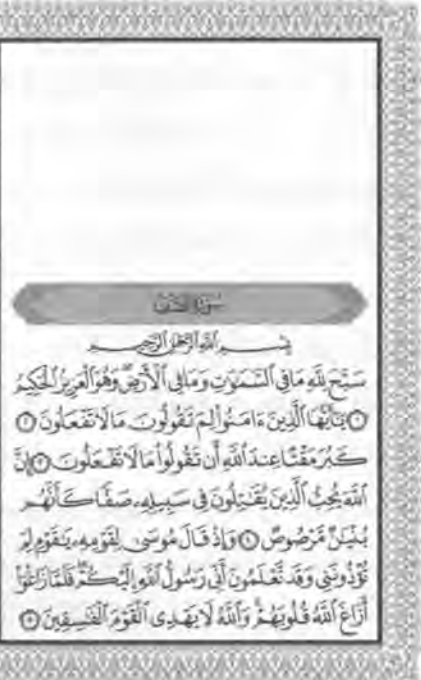 سُورَةُ الصَّفِّ
بِسْمِ اللَّهِ الرَّحْمَٰنِ الرَّحِيمِ
سَبَّحَ لِلَّهِ مَا فِي السَّمَٰوَٰتِ وَمَا فِي الْأَرْضِ وَهُوَ الْعَزِيزُ الْحَكِيمُ
۝١ يَٰٓأَيُّهَا الَّذِينَ ءَامَنُوا لِمَ تَقُولُونَ مَا لَا تَفْعَلُونَ ۝٢
كَبُرَ مَقْتًا عِندَ اللَّهِ أَن تَقُولُوا مَا لَا تَفْعَلُونَ ۝٣ إِنَّ
اللَّهَ يُحِبُّ الَّذِينَ يُقَٰتِلُونَ فِي سَبِيلِهِۦ صَفًّا كَأَنَّهُم
بُنْيَٰنٌ مَّرْصُوصٌ ۝٤ وَإِذْ قَالَ مُوسَىٰ لِقَوْمِهِۦ يَٰقَوْمِ لِمَ
تُؤْذُونَنِي وَقَد تَّعْلَمُونَ أَنِّي رَسُولُ اللَّهِ إِلَيْكُمْ فَلَمَّا زَاغُوا
أَزَاغَ اللَّهُ قُلُوبَهُمْ وَاللَّهُ لَا يَهْدِي الْقَوْمَ الْفَٰسِقِينَ ۝٥